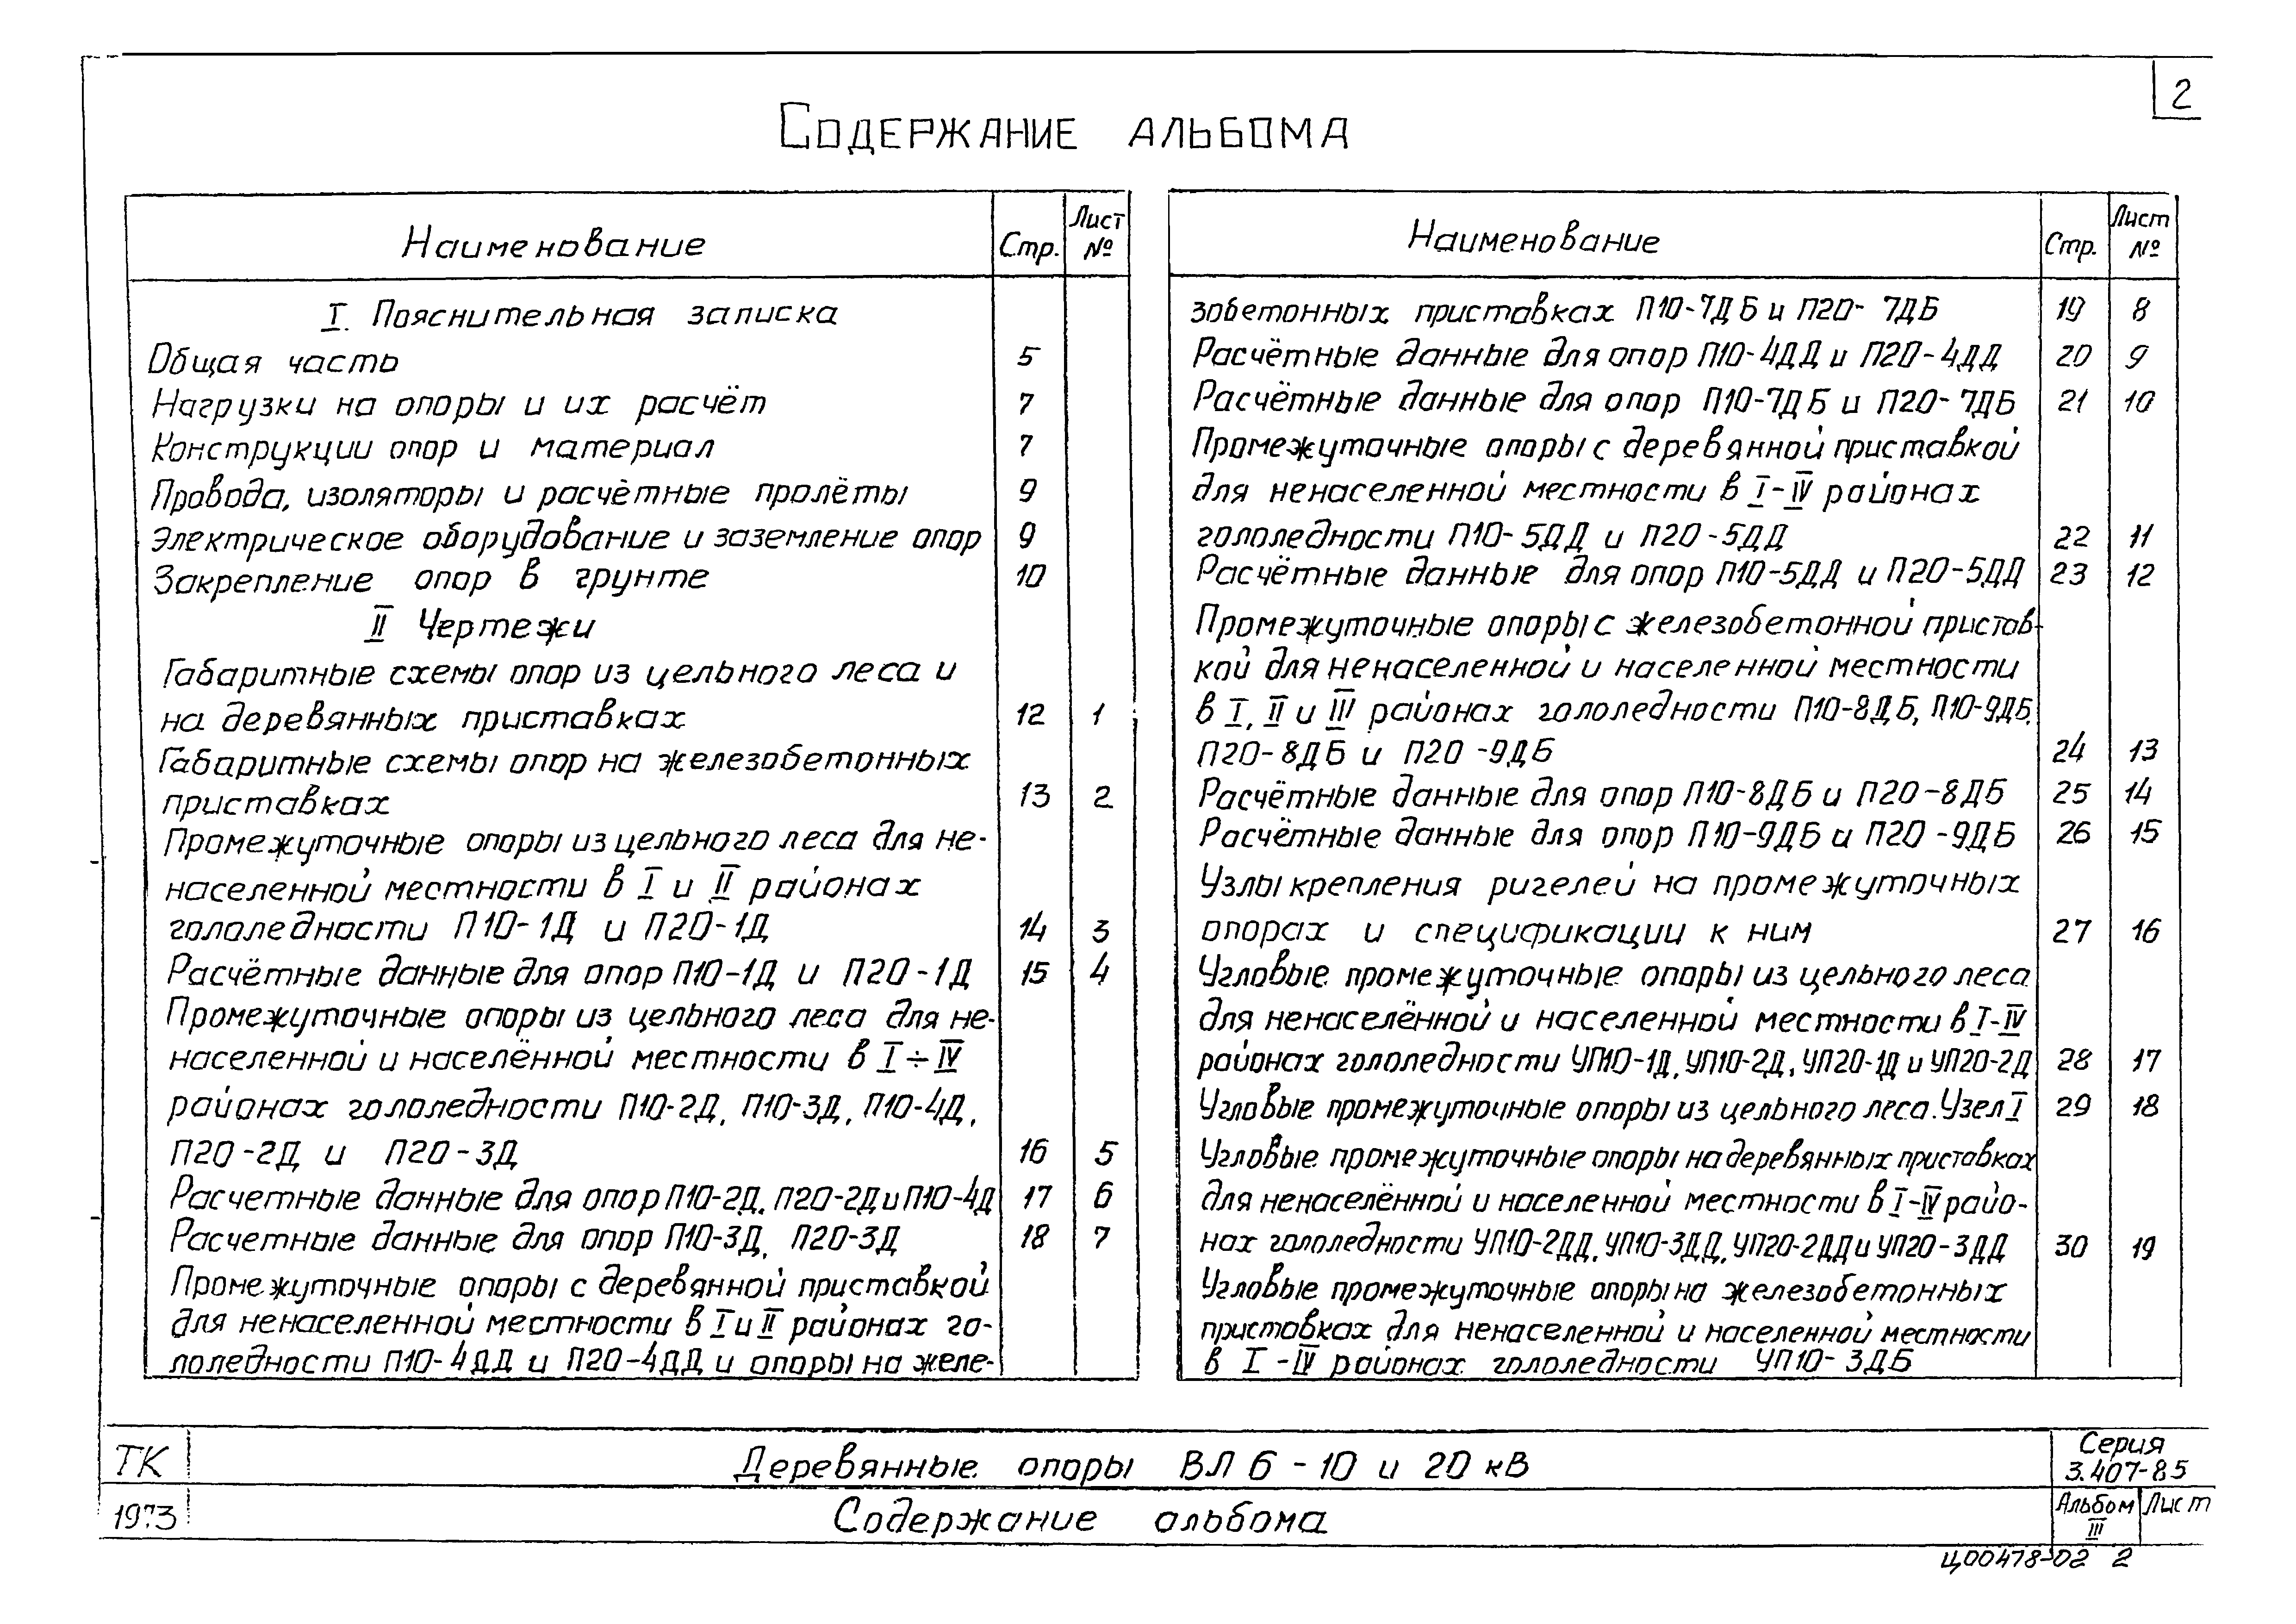 2
Содержание альбома
Наименование Стр. Лист №
I. Пояснительная записка
Общая часть 5
Нагрузки на опоры и их расчёт 7
Конструкции опор и материал 7
Провода, изоляторы и расчётные пролёты 9
Электрическое оборудование и заземление опор 9
Закрепление опор в грунте 10
II Чертежи
Габаритные схемы опор из цельного леса и
на деревянных приставках 12 1
Габаритные схемы опор на железобетонных
приставках 13 2
Промежуточные опоры из цельного леса для не-
населенной местности в I и II районах
гололедности П10-1Д и П20-1Д 14 3
Расчётные данные для опор П10-1Д и П20-1Д 15 4
Промежуточные опоры из цельного леса для не-
населенной и населённой местности в I÷IV
районах гололедности П10-2Д, П10-3Д, П10-4Д,
П20-2Д и П20-3Д 16 5
Расчетные данные для опор П10-2Д, П20-2Д и П10-4Д 17 6
Расчетные данные для опор П10-3Д, П20-3Д 18 7
Промежуточные опоры с деревянной приставкой
для ненаселенной местности в I и II районах го-
лоледности П10-4ДД и П20-4ДД и опоры на желе-
Наименование Стр. Лист №
зобетонных приставках П10-7ДБ и П20-7ДБ 19 8
Расчётные данные для опор П10-4ДД и П20-4ДД 20 9
Расчётные данные для опор П10-7ДБ и П20-7ДБ 21 10
Промежуточные опоры с деревянной приставкой
для ненаселенной местности в I-IV районах
гололедности П10-5ДД и П20-5ДД 22 11
Расчётные данные для опор П10-5ДД и П20-5ДД 23 12
Промежуточные опоры с железобетонной пристав-
кой для ненаселенной и населенной местности
в I, II и III районах гололедности П10-8ДБ, П10-9ДБ,
П20-8ДБ и П20-9ДБ 24 13
Расчётные данные для опор П10-8ДБ и П20-8ДБ 25 14
Расчётные данные для опор П10-9ДБ и П20-9ДБ 26 15
Узлы крепления ригелей на промежуточных
опорах и спецификации к ним 27 16
Угловые промежуточные опоры из цельного леса
для ненаселённой и населенной местности в I-IV
районах гололедности УП10-1Д, УП10-2Д, УП20-1Д и УП20-2Д 28 17
Угловые промежуточные опоры из цельного леса. Узел I 29 18
Угловые промежуточные опоры на деревянных приставках
для ненаселённой и населенной местности в I-IV райо-
нах гололедности УП10-2ДД, УП10-3ДД, УП20-2ДД и УП20-3ДД 30 19
Угловые промежуточные опоры на железобетонных
приставках для ненаселенной и населенной местности
в I-IV районах гололедности УП10-3ДБ
ТК Деревянные опоры ВЛ 6-10 и 20 кВ Серия 3.407-85
1973 Содержание альбома Альбом III Лист
Ц00478-02 2